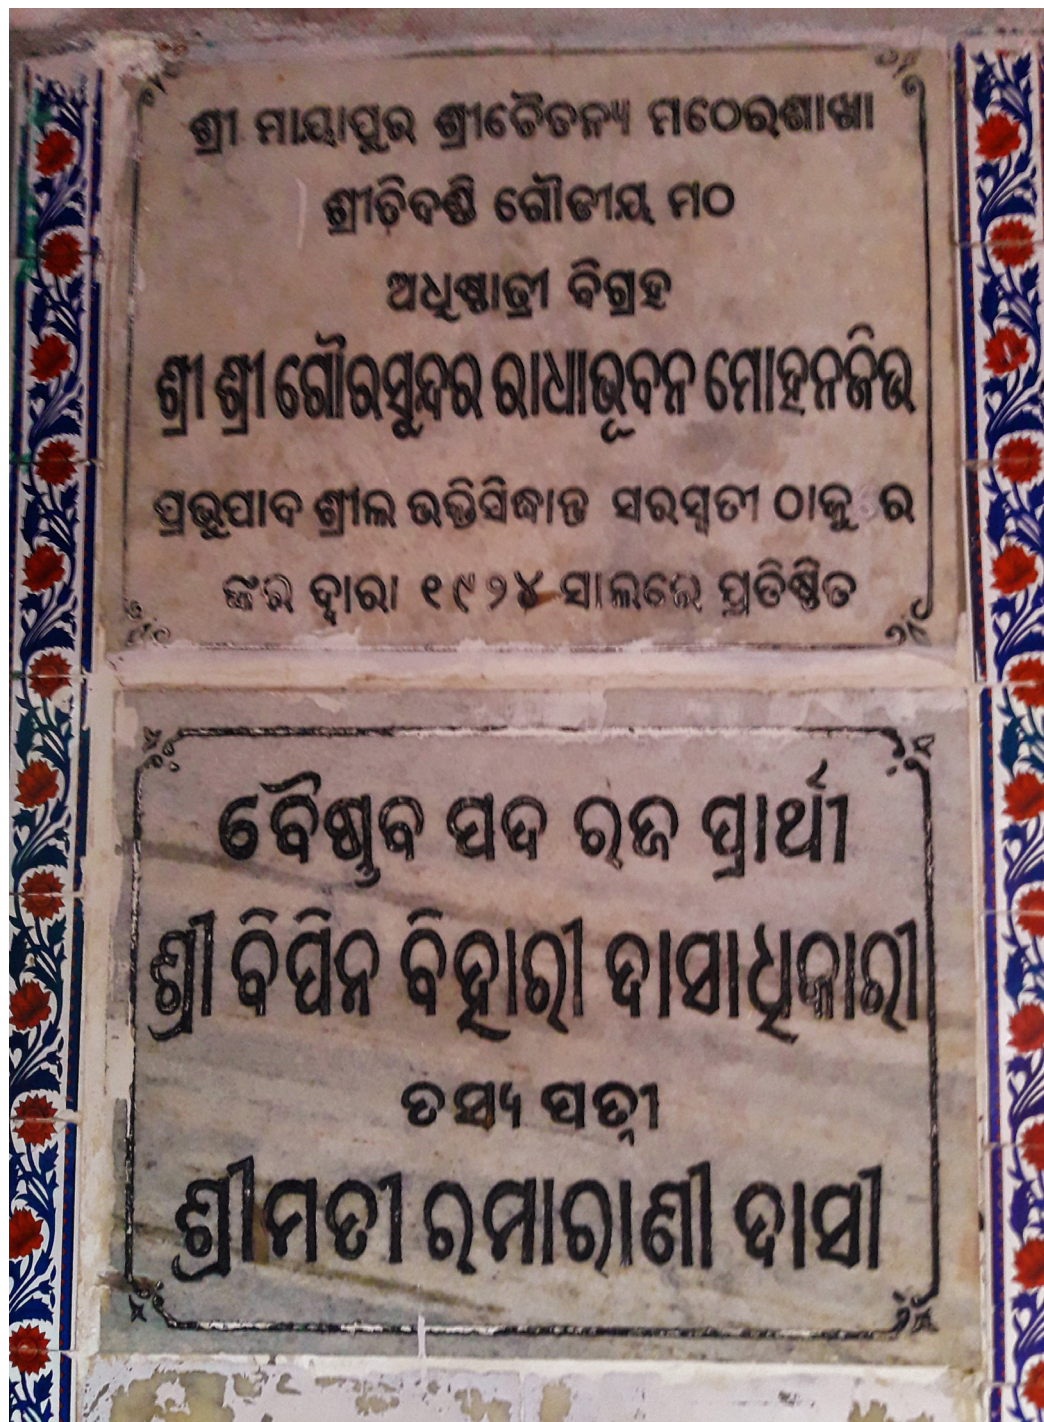 ଶ୍ରୀ ମାୟାପୁର ଶ୍ରୀଚୈତନ୍ୟ ମଠେରଶାଖା
ଶ୍ରୀତ୍ରିଦଣ୍ଡି ଗୌଡୀୟ ମଠ
ଅଧିଷ୍ଠାତ୍ରୀ ବିଗ୍ରହ
ଶ୍ରୀ ଶ୍ରୀ ଗୌରସୁନ୍ଦର ରାଧାଭୂବନ ମୋହନଜିଉ
ପ୍ରଭୁପାଦ ଶ୍ରୀଲ ଭକ୍ତିସିଦ୍ଧାନ୍ତ ସରସ୍ୱତୀ ଠାକୁ ର
ଙ୍କର ଦ୍ୱାରା ୧୯୨୪ ସାଲରେ ପ୍ରତିଷ୍ଠିତ
ବୈଷ୍ଣବ ପଦ ରଜ ପ୍ରାର୍ଥୀ
ଶ୍ରୀ ବିପିନ ବିହାରୀ ଦାସାଧିକାରୀ
ତସ୍ୟ ପତ୍ନୀ
ଶ୍ରୀମତୀ ରମାରାଣୀ ଦାସୀ